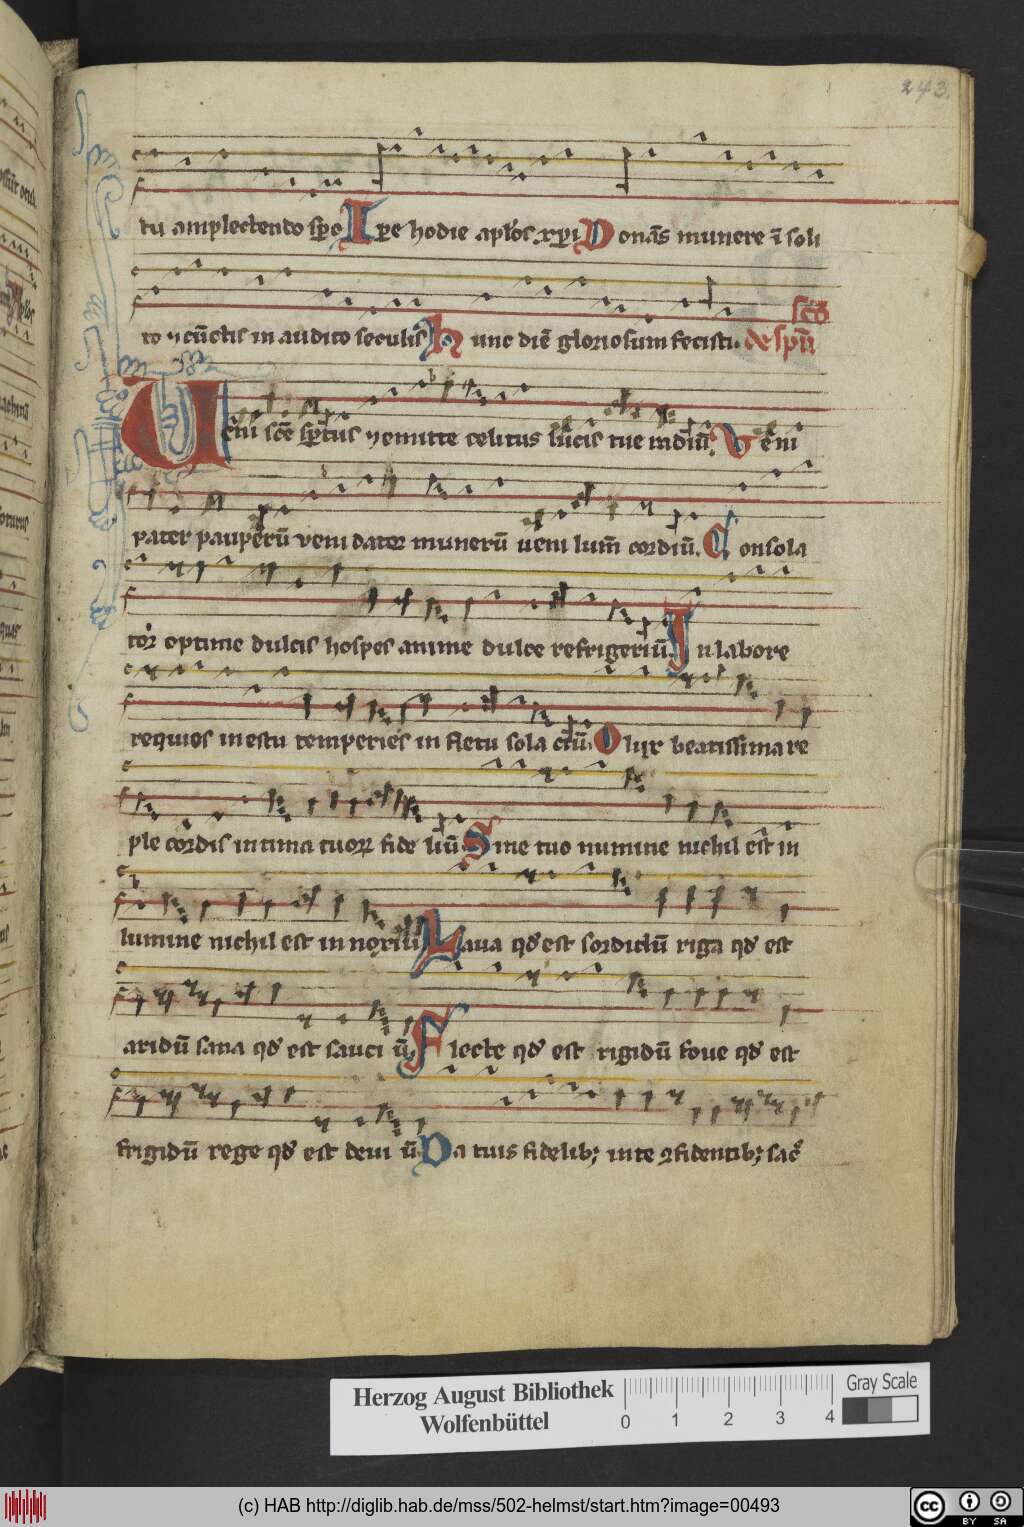 243.
tu amplectendo sp̄o Ip̄e hodie apl̓os xp̄i Donās munere ī soli
to ⁊ cūctis in audito seculis hunc diē gloriosum fecisti. sc̄o de sp̄u
Ueni sc̄e sp̄itus ⁊ emitte celitus lucis tue radiū. Veni
pater pauperū veni dator munerū ueni lum̄ cordiū. Consola
tor optime dulcis hospes anime dulce refrigeriū. In labore
requies in estu temperies in fletu sola ciū. O lux beatissima re
ple cordis intima tuoꝝ fide liū Sine tuo numine nichil est in
lumine nichil est in noxiū Laua qd̓ est sordidū riga qd̓ est
aridū sana qd̓ est sauci ū. Flecte qd̓ est rigidū foue qd̓ est
frigidū rege qd̓ est deui ū. Da tuis fidelib; in te ꝯfidentib; sac̄
Herzog August Bibliothek
Wolfenbüttel
0 1 2 3 4
Gray Scale
(c) HAB http://diglib.hab.de/mss/502-helmst/start.htm?image=00493
cc BY SA